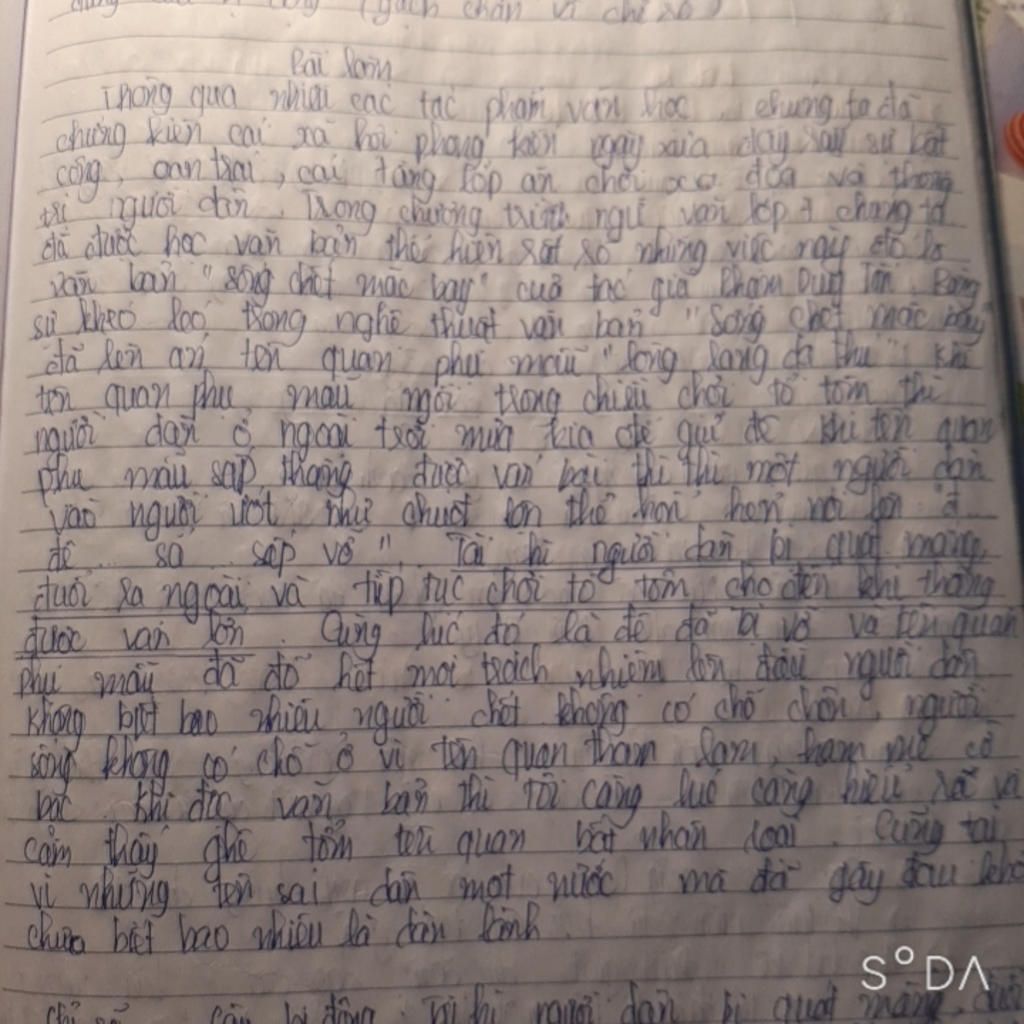 dụng câu bị động (gạch chân và chỉ rõ)
Bài làm
Thông qua nhiều các tác phẩm văn học, chúng ta đã
chứng kiến cái xã hội phong kiến ngày xưa đầy sự bất
công, oan trái, cái tầng lớp ăn chơi xa đọa và thống
trị người dân. Trong chương trình ngữ văn lớp 7 chúng ta
đã được học văn bản thể hiện rất rõ những việc này đó là
văn bản "sống chết mặc bay" của tác giả Phạm Duy Tốn. Bằng
sự khéo léo trong nghệ thuật văn bản "Sống chết mặc bay"
đã lên án tên quan phụ mẫu "lòng lang dạ thú" khi
tên quan phụ mẫu ngồi trong chơi tổ tôm thì
người dân ở ngoài trời mưa kia để giữ đê khi tên quan
phụ mẫu sắp thắng được ván bài thì thì một người dân
vào người ướt như chuột lột thở hổn hển nói
đê sắp vỡ". Tôi bị người dân bị quát mắng,
đuổi ra ngoài và tiếp tục chơi tổ tôm cho đến khi thắng
được ván lớn. Cùng lúc đó là đê đã bị vỡ và tên quan
phụ mẫu đã đổ hết mọi trách nhiệm lên đầu người dân
không biết bao nhiêu người chết không có chỗ chôn, người
sống không có chỗ ở vì tên quan tham lam, ham mê cờ
bạc. Khi đọc văn bản thì tôi càng lúc càng hiểu rõ và
cảm thấy ghê tởm tên quan bất nhân loại. Cũng tại
vì những tên sai dân một nước mà đã gây đau khổ
chưa biết bao nhiêu là dân lành.
Chỉ rõ câu bị động: bị người dân bị quát mắng, đuổi
SODA